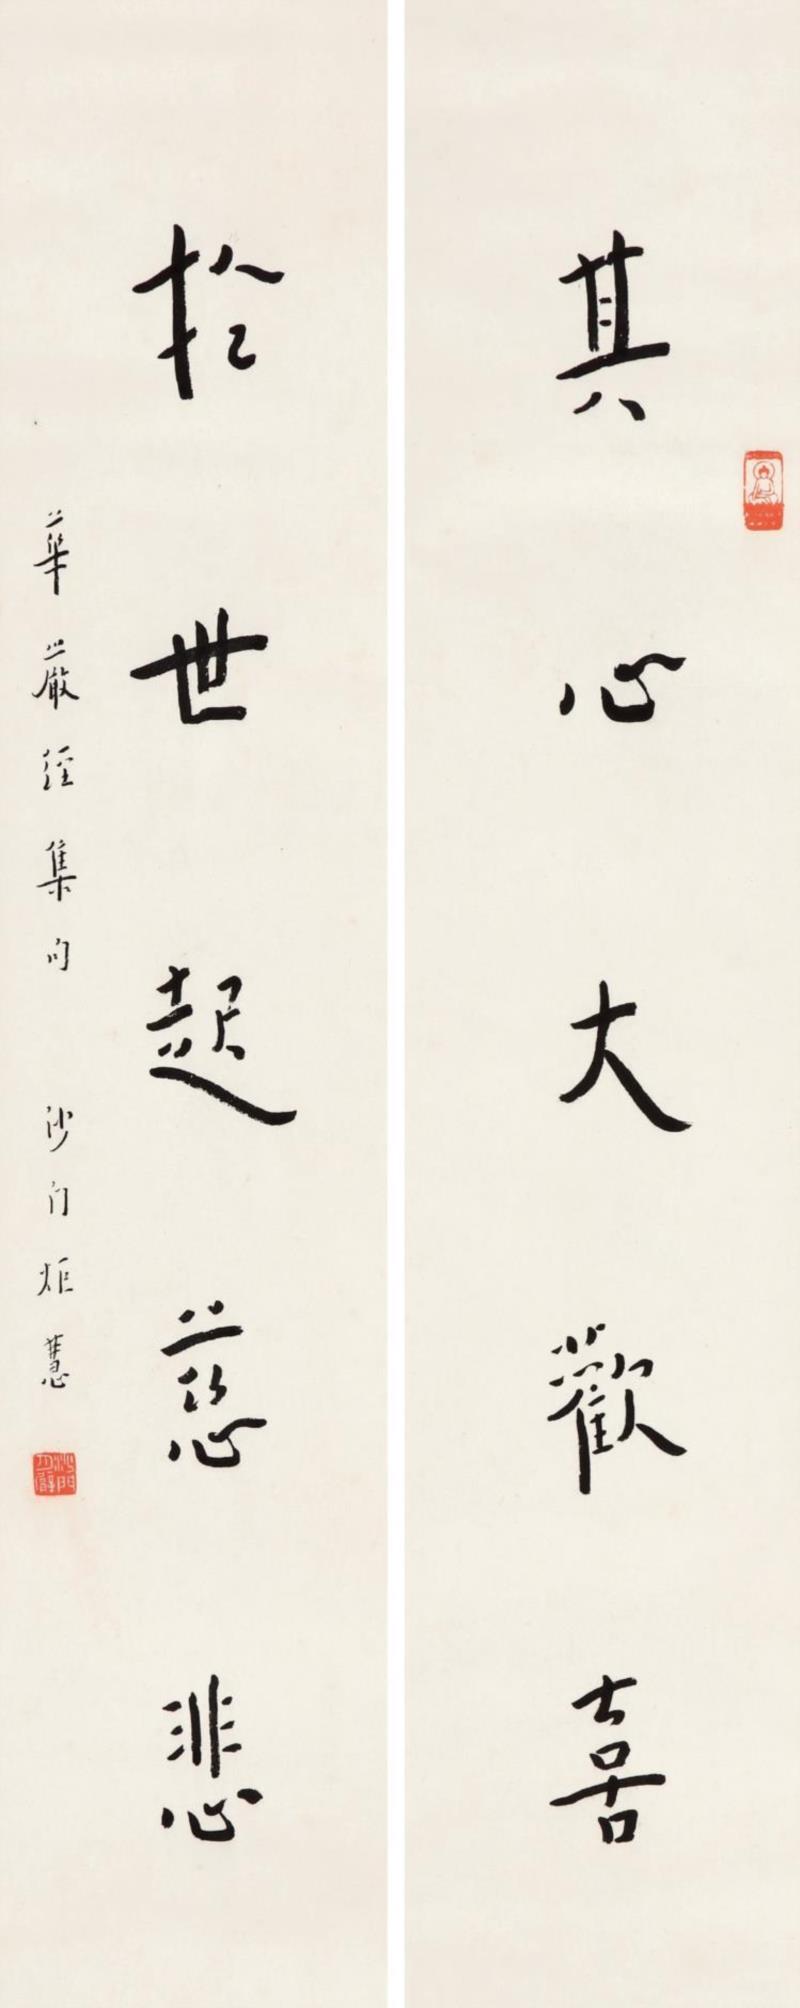 其心大歡喜
於世起慈悲
華嚴經集句 沙門炬慧
沙門月臂